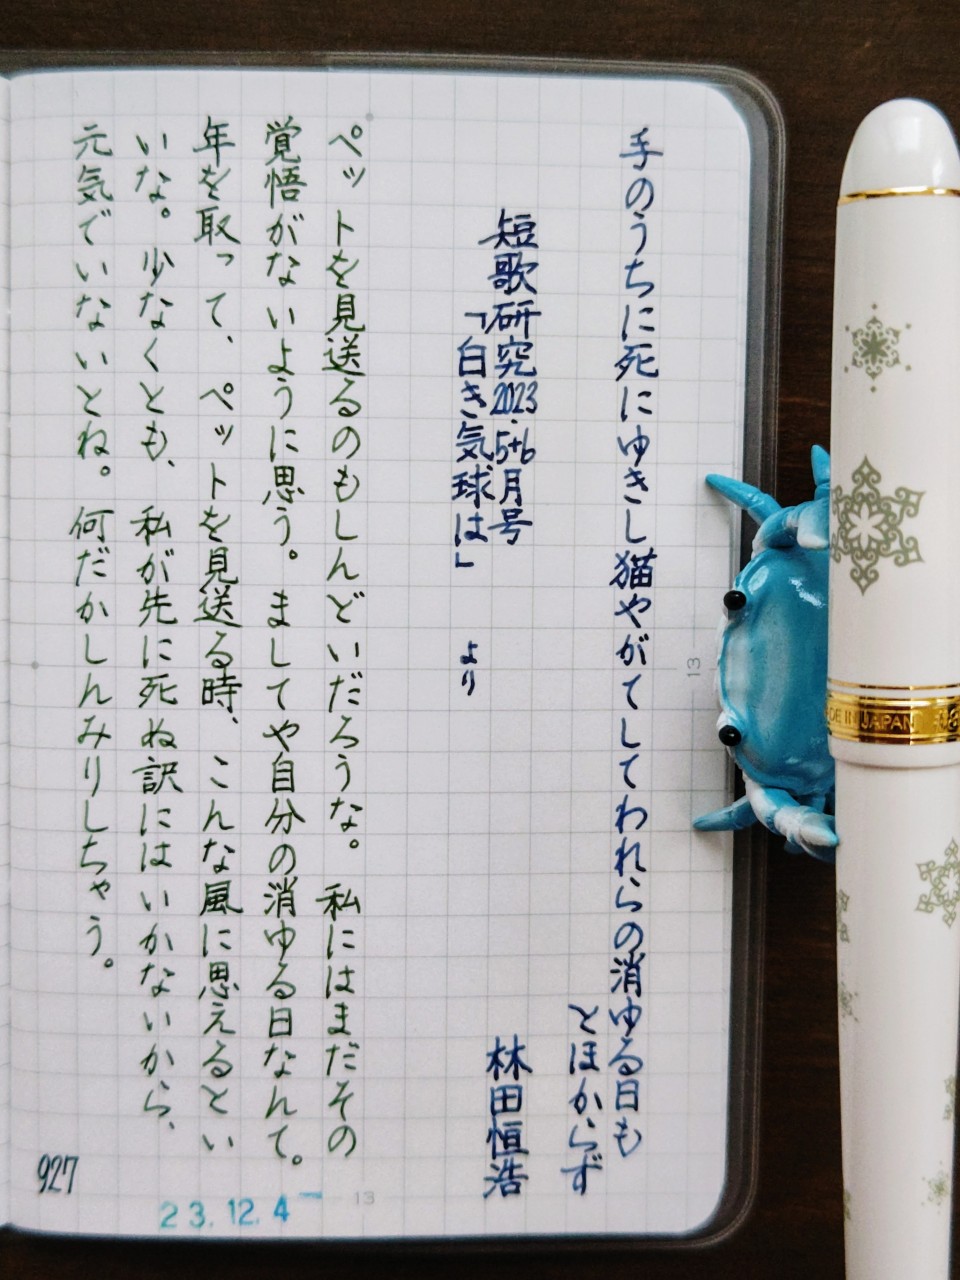 手のうちに死にゆきし猫やがてしてわれらの消ゆる日も
とほからず
林田恒浩
短歌研究2023.5+6月号
「白き気球は」 より
ペットを見送るのもしんどいだろうな。私にはまだその
覚悟がないように思う。ましてや自分の消ゆる日なんて。
年を取って、ペットを見送る時、こんな風に思えるとい
いな。少なくとも、私が先に死ぬ訳にはいかないから、
元気でいないとね。何だかしんみりしちゃう。
927
23.12.4
13
13
DE IN JAPAN